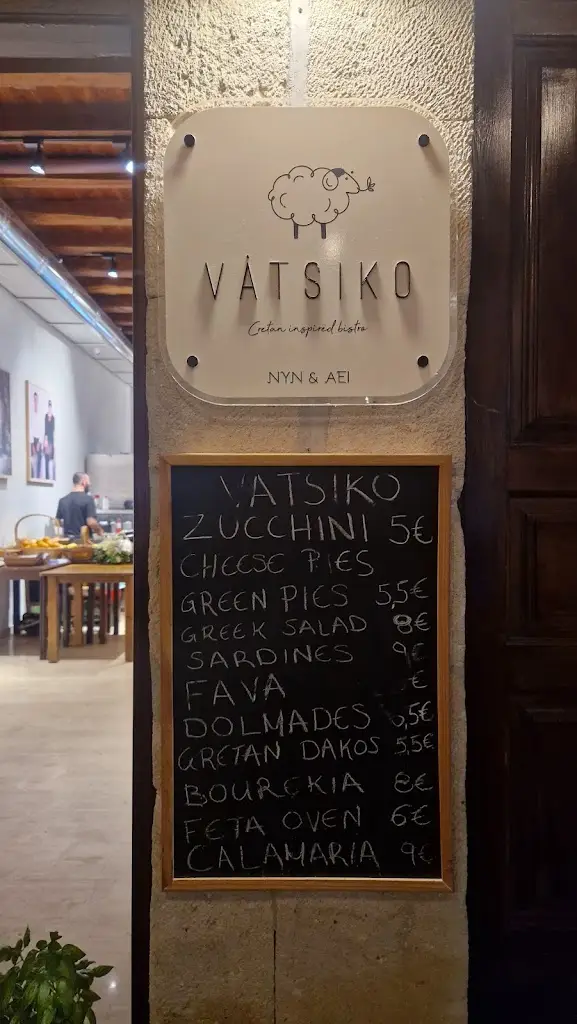 VÁTSIKO
Cretan inspired bistro
NYN & AEI
VATSIKO
ZUCCHINI 5€
CHEESE PIES
GREEN PIES 5,5€
GREEK SALAD 8€
SARDINES 9€
FAVA €
DOLMADES ,5€
CRETAN DAKOS 5,5€
BOUREKIA 8€
FETA OVEN 6€
CALAMARIA 9€